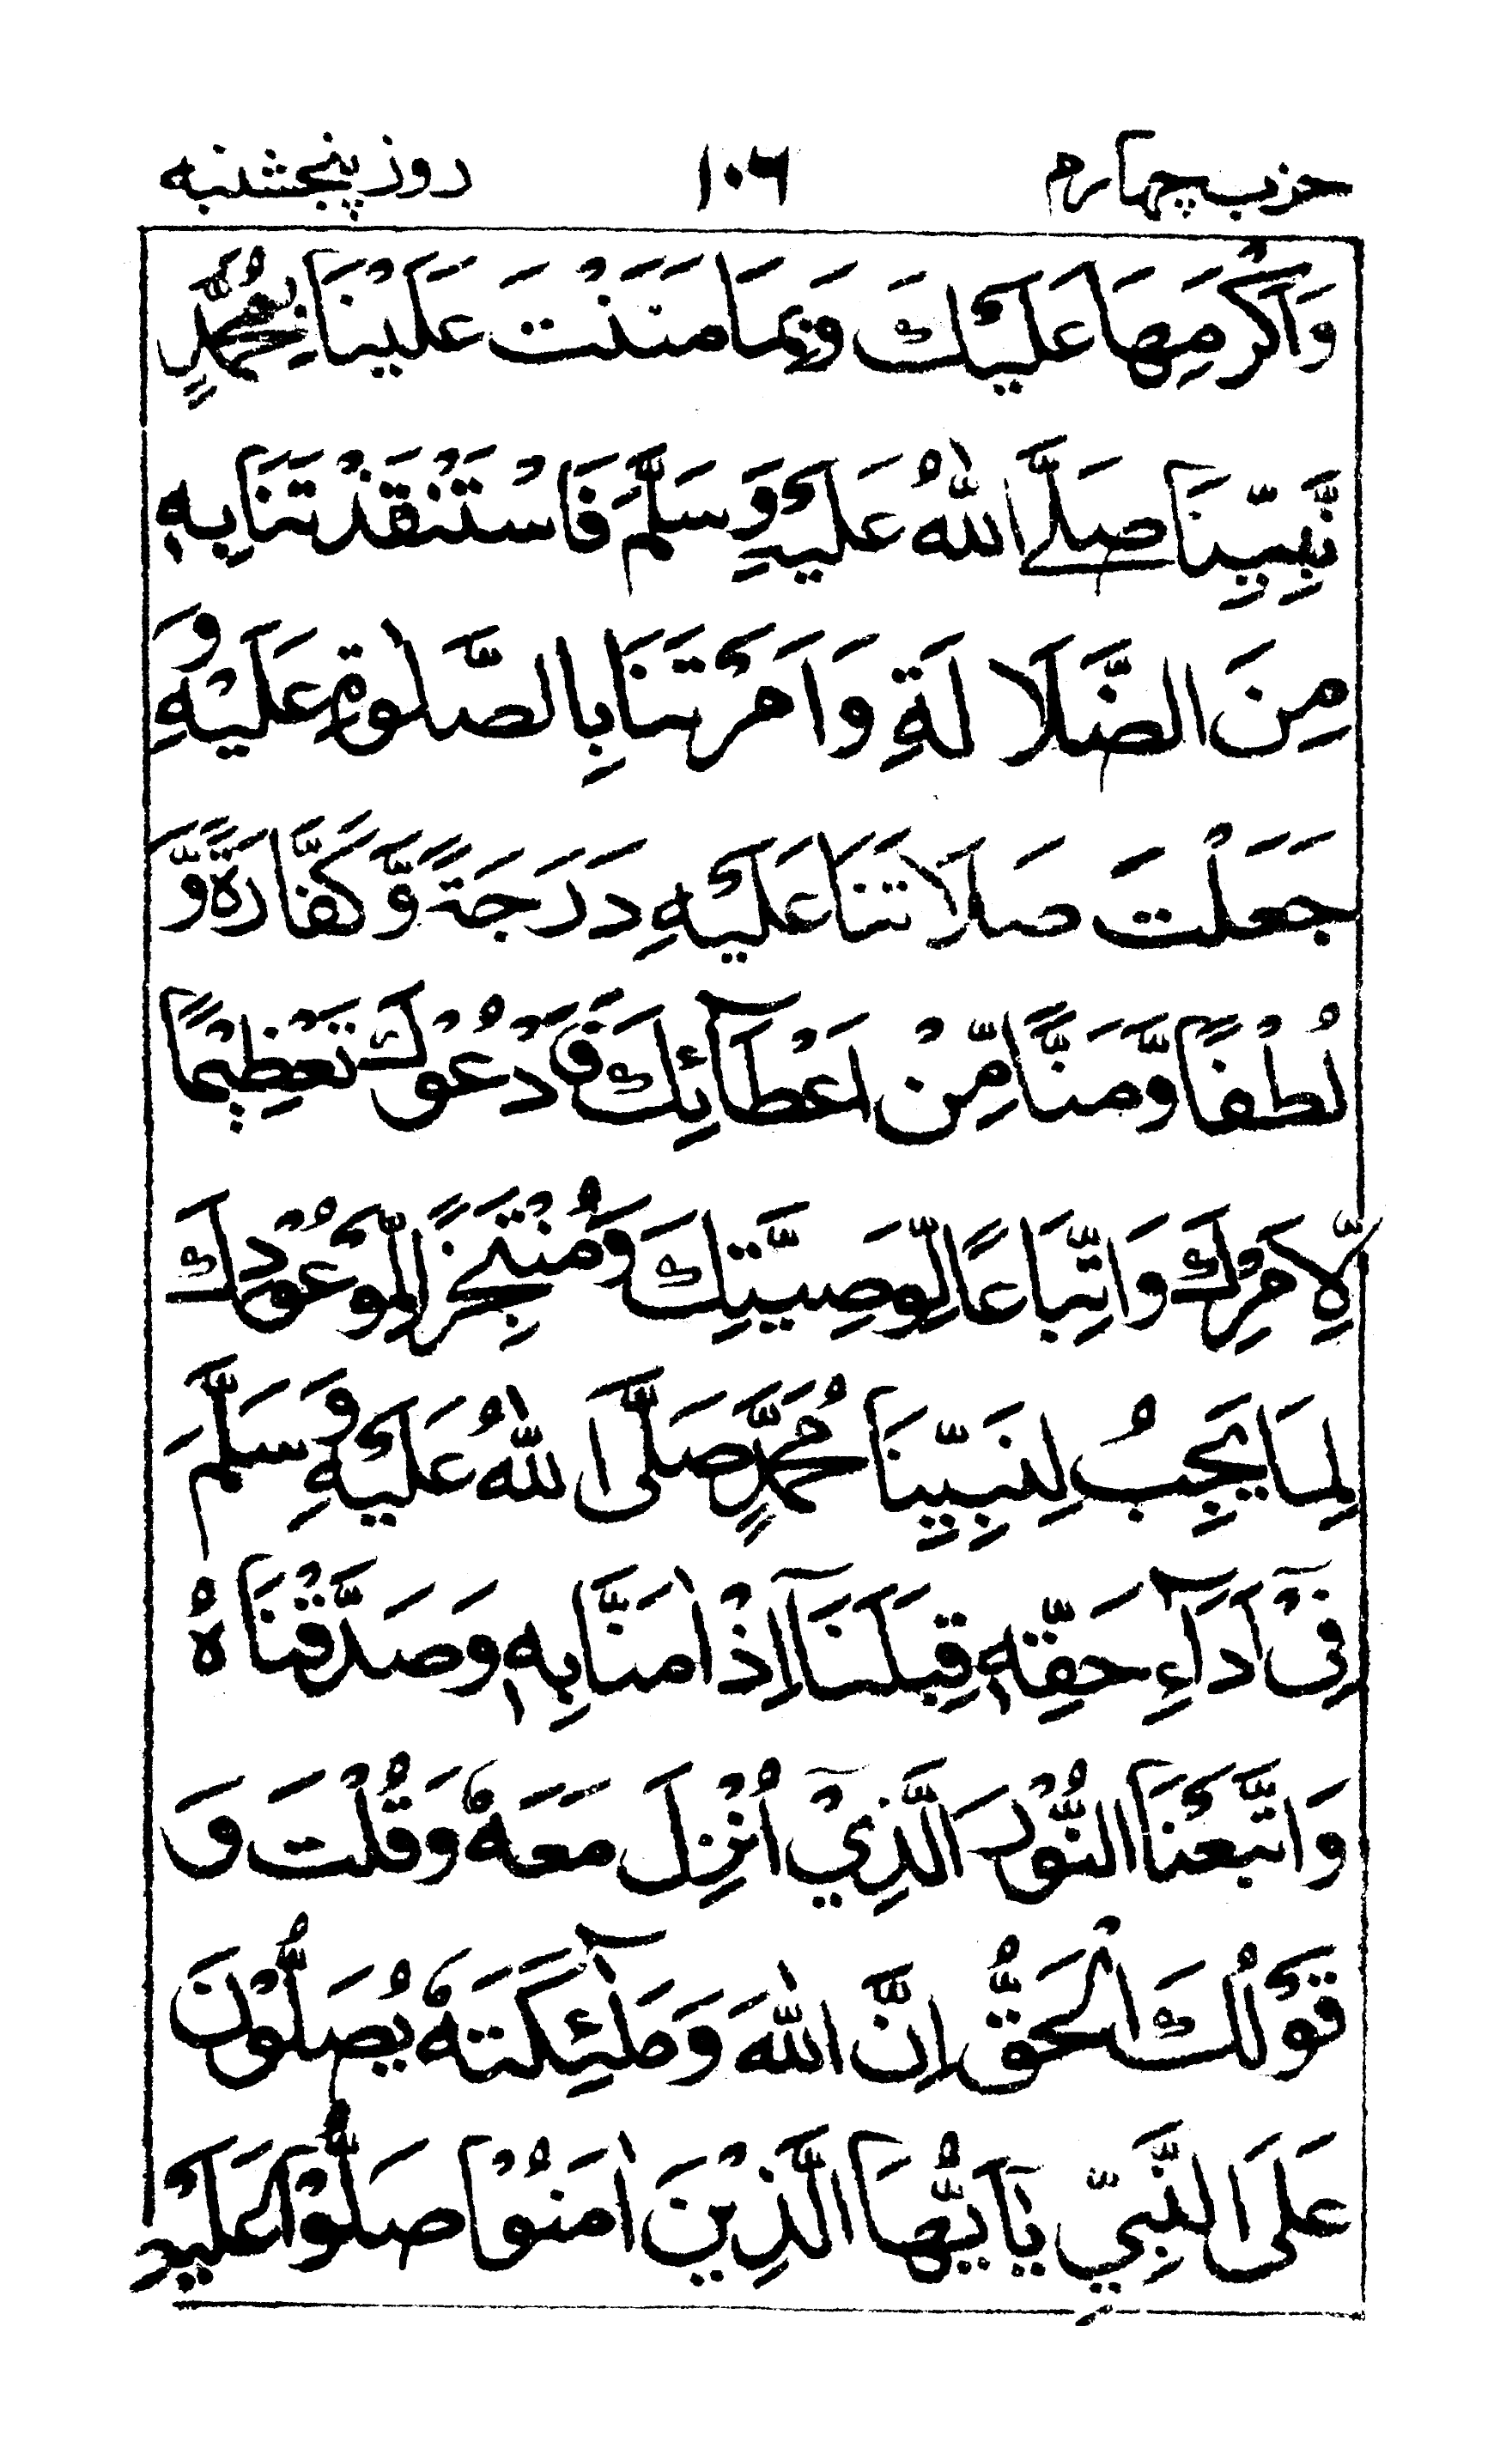 حزب چهارم ۱۰۶ روز پنجشنبه
وَاَكْرَمِهَا عَلَيْكَ وَبِمَا مَنَنْتَ عَلَيْنَا بِمُحَمَّدٍ
نَّبِيِّنَا صَلَّى اللّٰهُ عَلَيْهِ وَسَلَّمَ فَاسْتَنْقَذْتَنَا بِهٖ
مِنَ الضَّلَالَةِ وَاَمَرْتَنَا بِالصَّلٰوةِ عَلَيْهِ وَ
جَعَلْتَ صَلَاتَنَا عَلَيْهِ دَرَجَةً وَّكَفَّارَةً وَّ
لُطْفًا وَّمَنًّا مِّنْ اَعْطَآئِكَ فَاَدْعُوْكَ تَعْظِيْمًا
لِّاَمْرِكَ وَاتِّبَاعًا لِّوَصِيَّتِكَ وَمُنْتَجِزًا لِّمَوْعُوْدِكَ
لِمَا يَجِبُ لِنَبِيِّنَا مُحَمَّدٍ صَلَّى اللّٰهُ عَلَيْهِ وَسَلَّمَ
فِيْٓ اَدَآءِ حَقِّهٖ قِبَلَنَآ اِذْ اٰمَنَّا بِهٖ وَصَدَّقْنَاهُ
وَاتَّبَعْنَا النُّوْرَ الَّذِيْٓ اُنْزِلَ مَعَهٗ وَقُلْتَ وَ
قَوْلُكَ الْحَقُّ اِنَّ اللّٰهَ وَمَلٰٓئِكَتَهٗ يُصَلُّوْنَ
عَلَى النَّبِيِّ يٰٓاَيُّهَا الَّذِيْنَ اٰمَنُوْا صَلُّوْا عَلَيْهِ